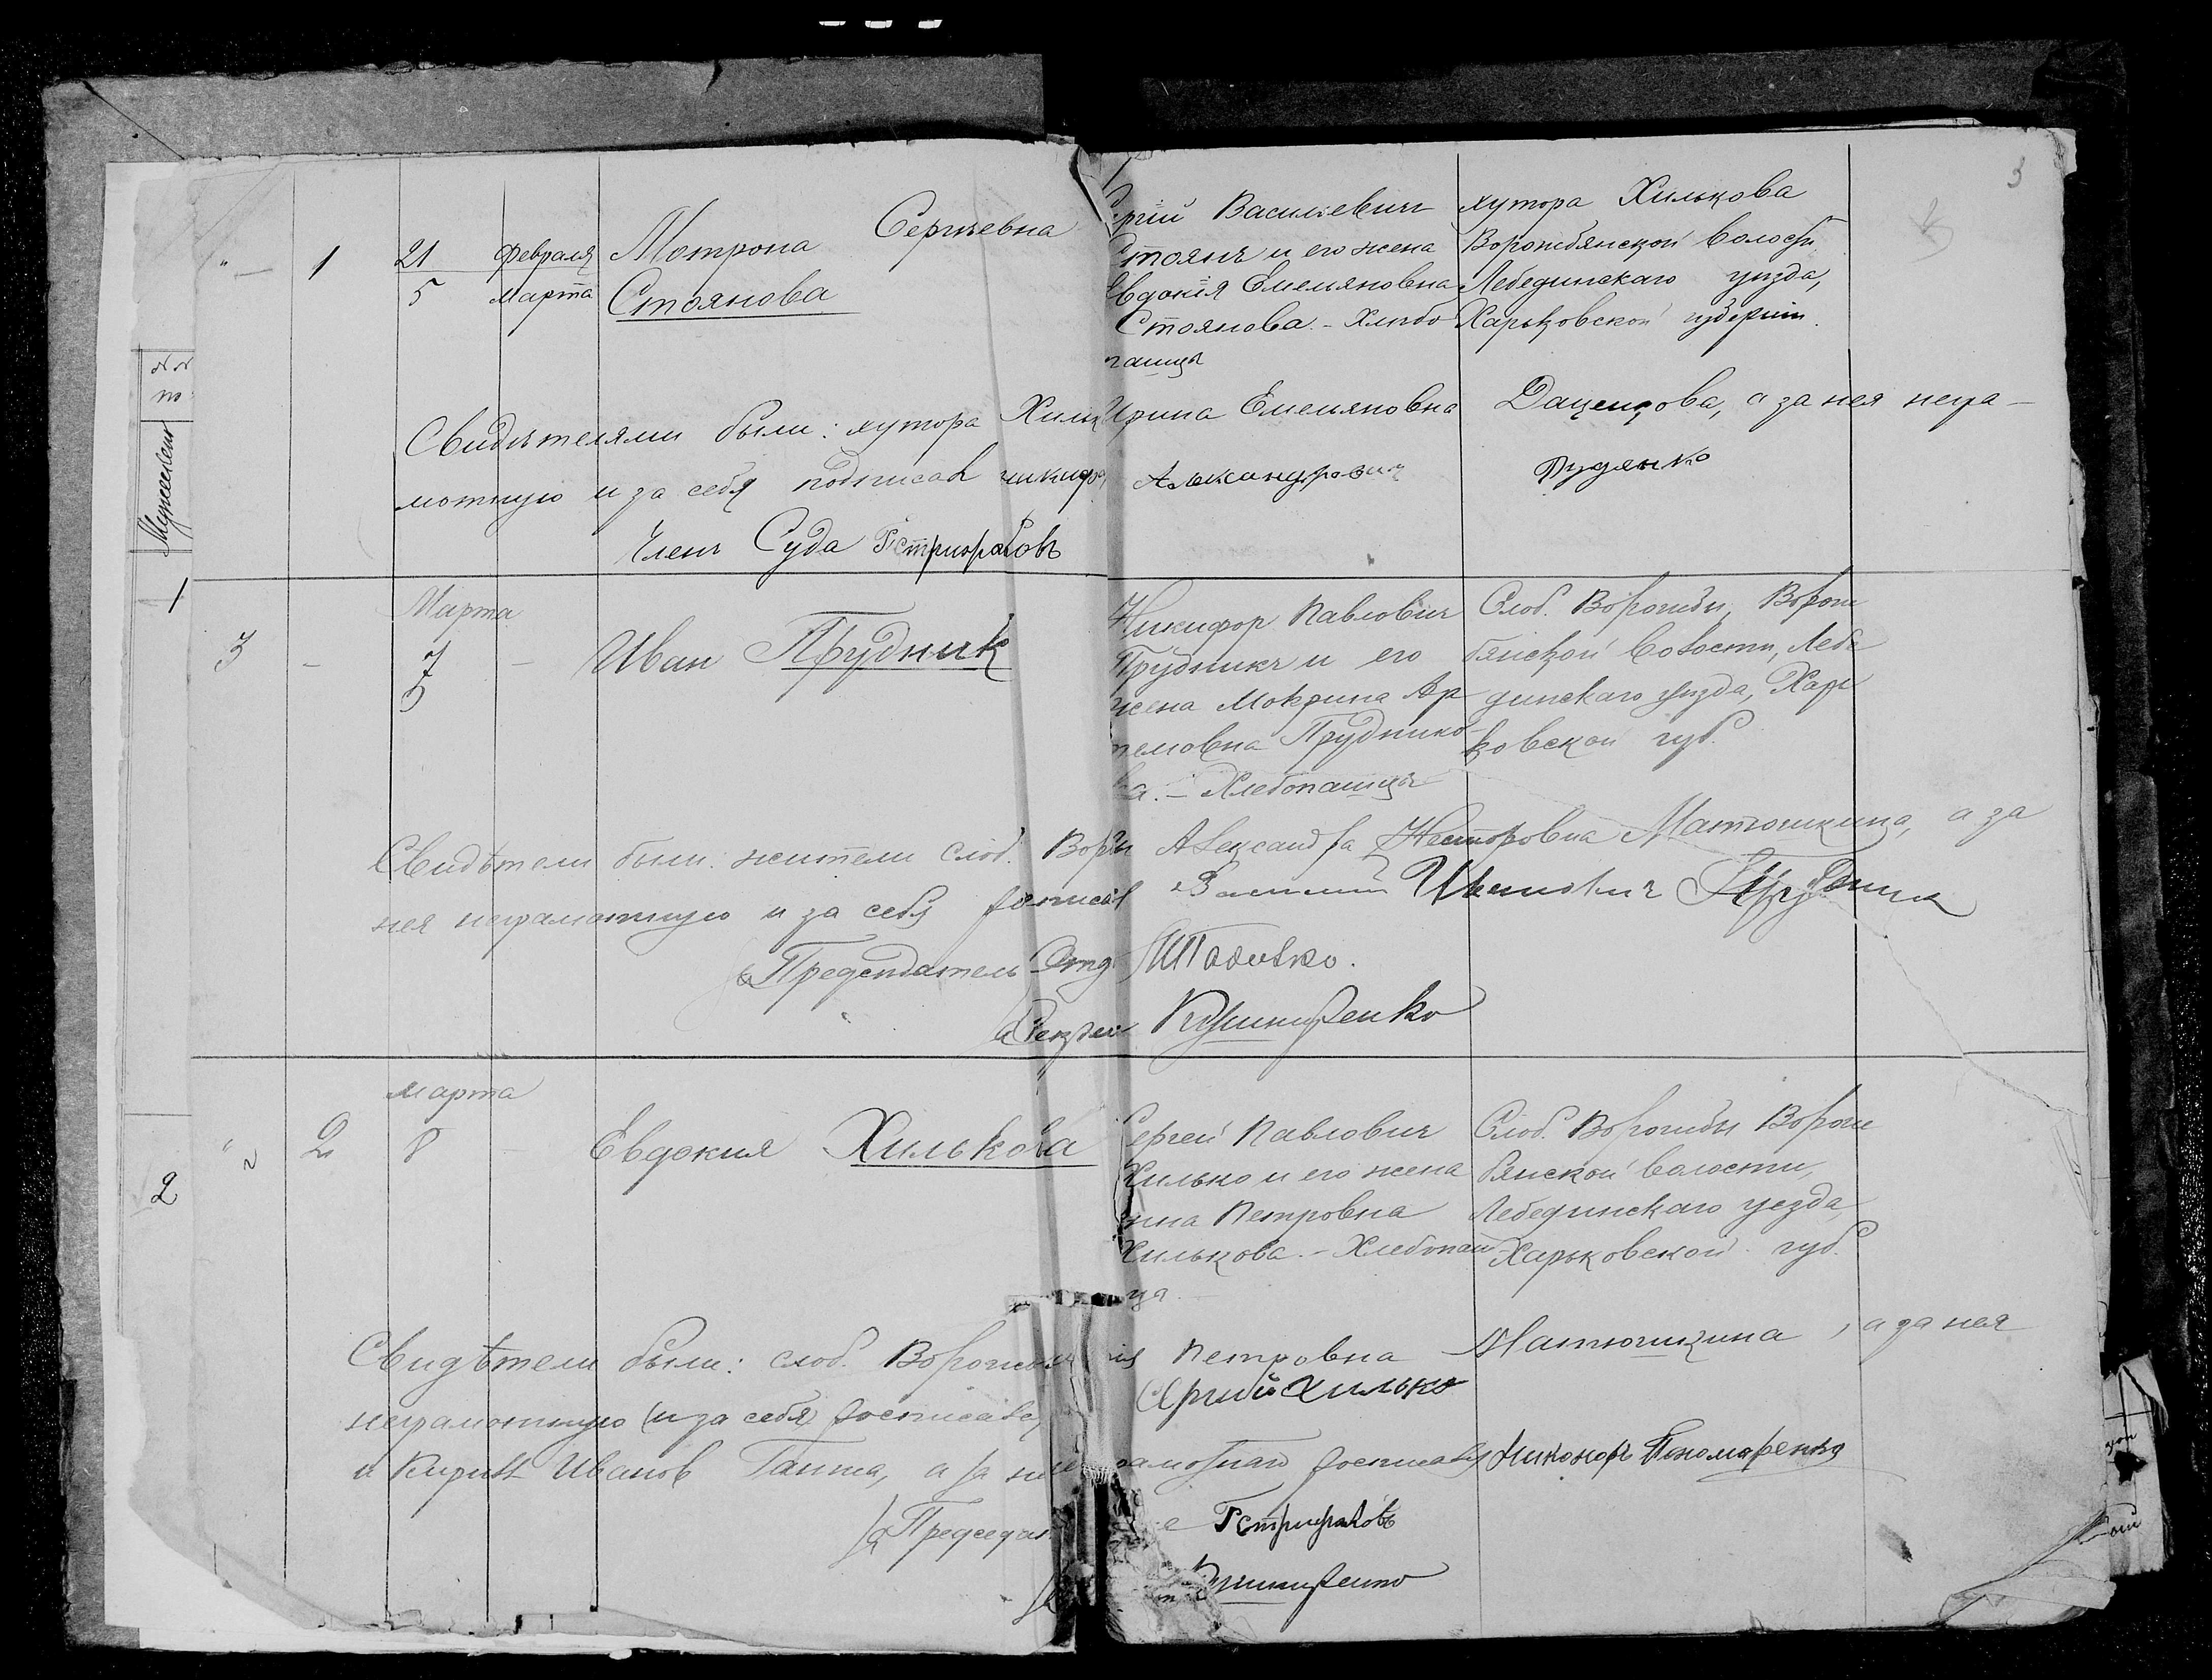 3
" — 1 21 февраля Мотрона Сергѣевна
5 марта Стоянова
Сергій Василіевичъ
Стоянъ и его жена
Евдокія Емельяновна
Стоянова. - Хлѣбо
пашцы
хутора Хилькова
Ворожбянской волости
Лебединскаго уѣзда,
Харьковской губерніи.
Свидѣтелями были: хутора Хильк Ирина Емельяновна Даценкова, а за нея негра-
мотную и за себя подписал Александрович Руденко
Членъ Суда
№№
по
Мужескаго
1
Марта
3 - 7 - Иван Прудник
Никифор Павлович
Прудникъ и его
жена Мокрина Ар
темовна Труднико
ва. - Хлебопашцы
Слоб. Ворожбы, Ворож
бянской волости, Лебе
динскаго уѣзда, Харь
ковской губ.
Свидѣтели были: жители слоб. Вор Александра Несторовна Матюшкина, а за
нея неграмотную и за себя росписал Иванович Прудник
Председатель Отд
Секре Кушниренко
марта
2
" 2 8 - Евдокия Хилькова
Сергей Павлович
Хилько и его жена
Петровна
Хилькова. - Хлебопаш
ца.
Слоб. Ворожбы Ворож
бянской волости,
Лебединскаго уезда
Харьковской губ.
Свидѣтели были: слоб. Ворож Петровна Матюшкина, а за нея
неграмотную (и за себя) росписался Сергий Хилько
и Кирилл Иванов Ганжа, а за росписался Никоноръ Пономаренко
Председат
Кушниренко